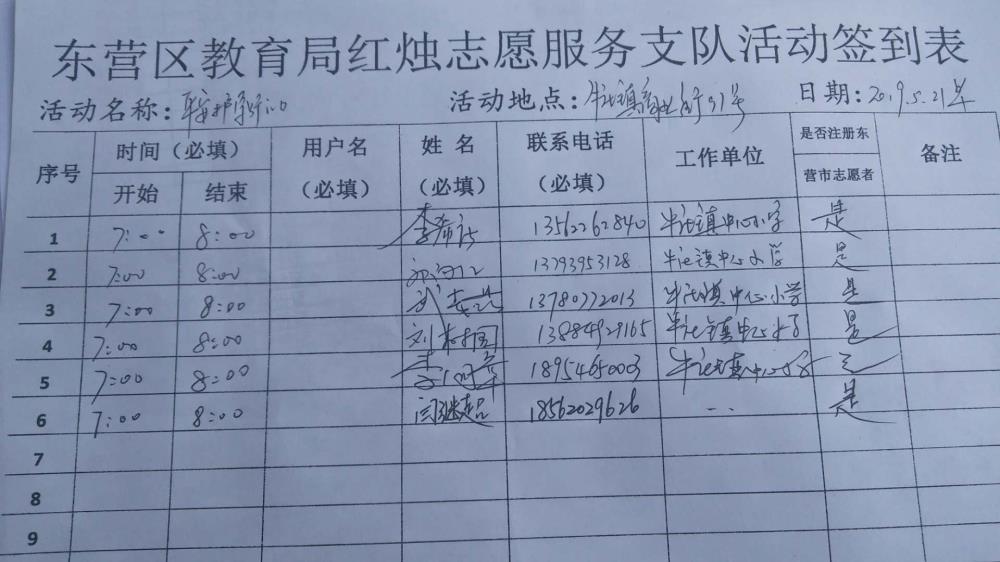 东营区教育局红烛志愿服务支队活动签到表
活动名称: 活动地点: 牛庄镇 日期: 2019.5.21
序号 时间（必填） 用户名 姓 名 联系电话 工作单位 是否注册东 备注
开始 结束 （必填） （必填） （必填） 营市志愿者
1 7:00 8:00 李希 13562262840 牛庄镇中心小学 是
2 7:00 8:00 13793953128 牛庄镇中心小学 是
3 7:00 8:00 13780772013 牛庄镇中心小学 是
4 7:00 8:00 刘树国 13884929165 牛庄镇中心小学 是
5 7:00 8:00 18954650003 牛庄镇中心小学 是
6 7:00 8:00 18562029626 是
7
8
9